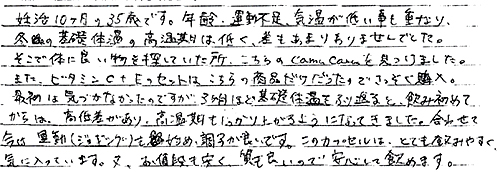 妊活10ヶ月の35歳です。年齢、運動不足、気温が低い事も重なり、
冬の基礎体温の高温期は低く、差もあまりありませんでした。
そこで体に良い物を探していた所、こちらのCamuCamuを見つけました。
また、ビタミンC+Eのセットはこちらの商品だけだったのでさっそく購入。
最初は気づかなかったのですが、3ヶ月ほど基礎体温をふり返ると、飲み初めて
からは、高低差があり、高温期もしっかり上がるようになってきました。合わせて
今は運動(ジョギング)も始め、調子が良いです。このカプセルは、とても飲みやすく
気に入っています。又、お値段も安く、質も良いので安心して飲めます。